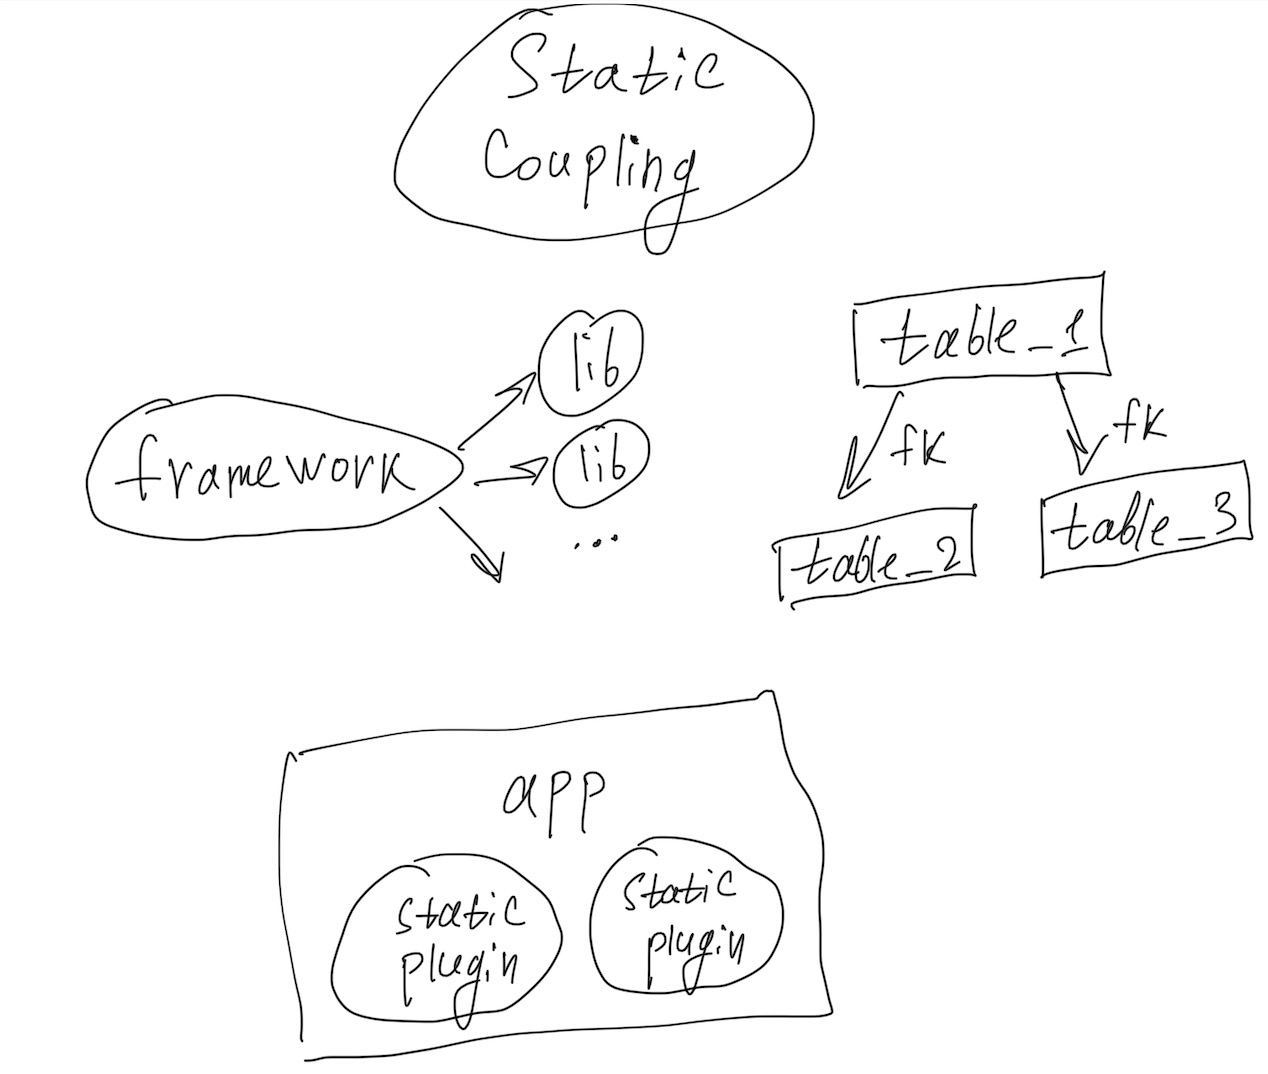 Static
Coupling
framework
lib
lib
...
table_1
fk
fk
table_2
table_3
app
static
plugin
static
plugin